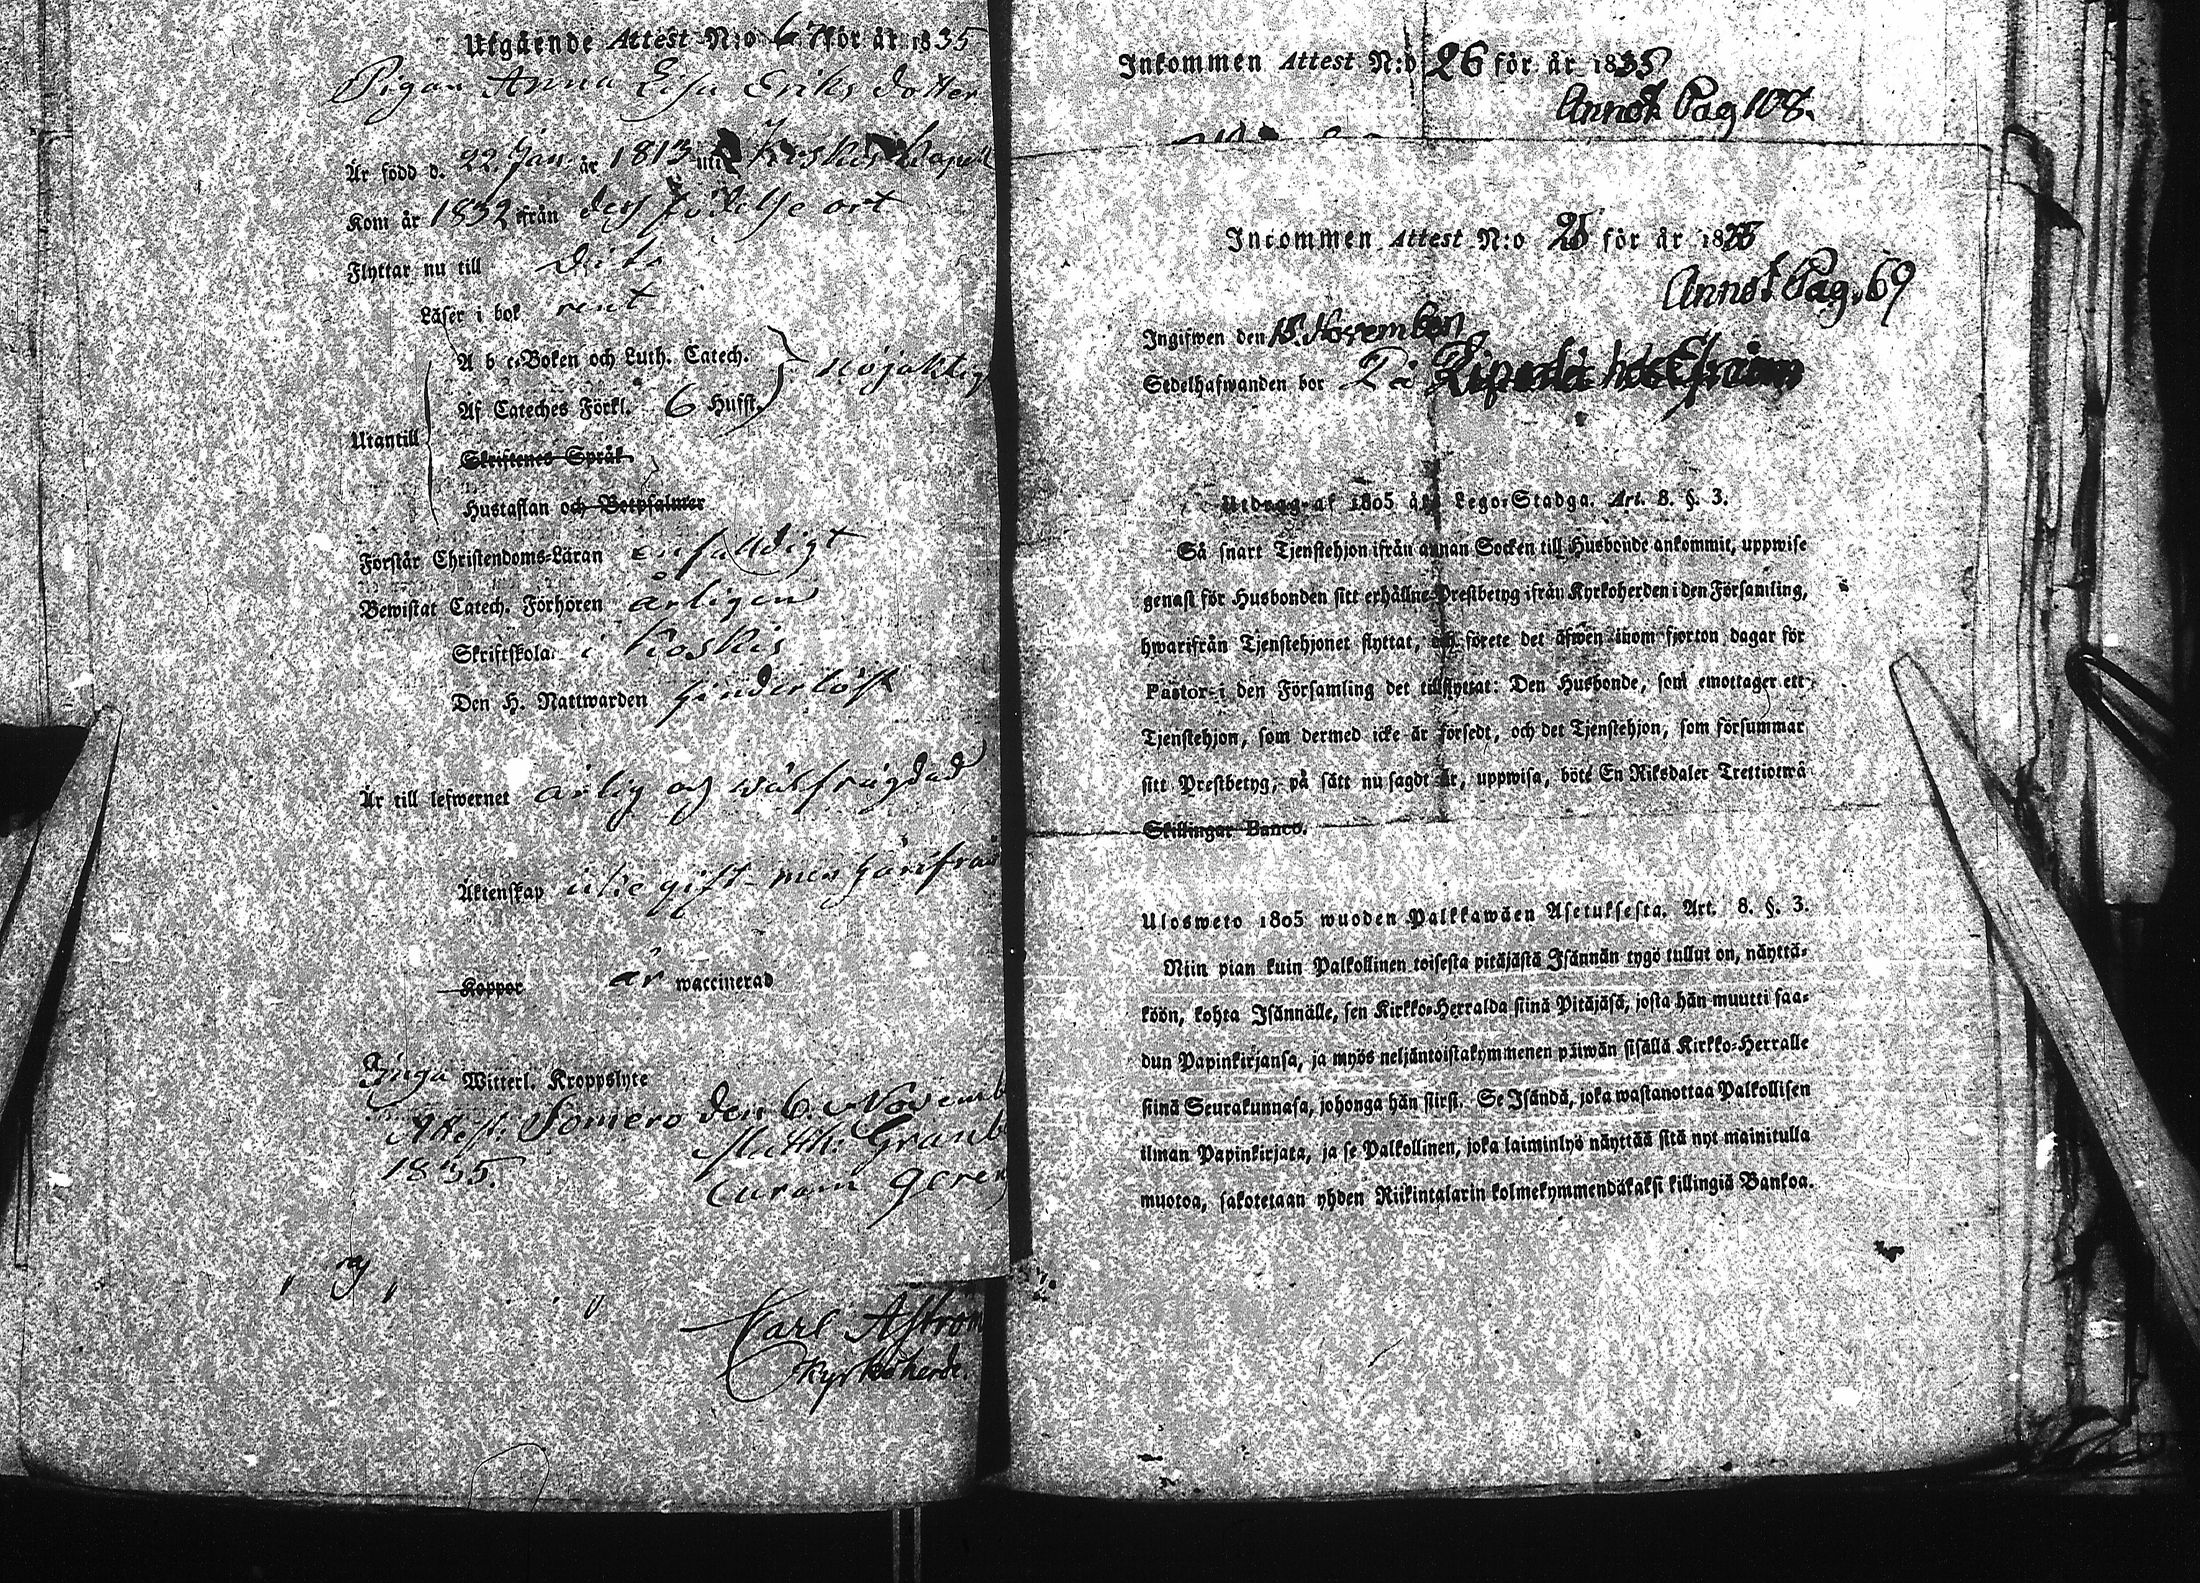 Utgående Attest N:o 67 för år 1835
Pigan Anna Lisa Eriks dotter
Är född d. 22 Jan. år 1813 uti Koskis Capell
Kom år 1832 ifrån dess födelse ort
Flyttar nu till Dito
Läser i bok rent
A b c-Boken och Luth. Catech.
nöjaktig
Af Cateches Förkl. 6 Hufst.
Utantill
Skriftenes Språk
Hustaflan och Botpsalmer
Förstår Christendoms-Läran enfaldigt
Bewistat Catech. Förhören årligen
Skriftskola i Koskis
Den H. Nattwarden hinderlöst
Är till lefwernet ärlig och wälfrägdad
Äktenskap icke gift men härifrån
Koppor är waccinerad
Inga Witterl. Kroppslyte
Attest: Somero den 6. Novemb
1835. Matth: Granb
Curam geren
Carl Aström
Kyrkoherde.
Inkommen Attest N:o 26 för år 1835
Annot. Pag 108.
Incommen Attest N:o 25 för år 1835
Annot. Pag. 69
Ingifwen den 18. November
Sedelhafwanden bor På
Utdrag af 1805 års Lego-Stadga. Art. 8. §. 3.
Så snart Tjenstehjon ifrån annan Socken till Husbonde ankommit, uppwise
genast för Husbonden sitt erhållne Prestbetyg ifrån Kyrkoherden i den Församling,
hwarifrån Tjenstehjonet flyttat, och förete det äfwen inom fjorton dagar för
Pastor i den Församling det tillflyttat: Den Husbonde, som emottager ett
Tjenstehjon, som dermed icke är försedt, och det Tjenstehjon, som försummar
sitt Prestbetyg, på sätt nu sagdt är, uppwisa, böte En Riksdaler Trettiotwå
Skillingar Banco.
Ulosweto 1805 wuoden Palkkawäen Asetuksesta. Art. 8. §. 3.
Niin pian kuin Palkollinen toisesta pitäjästä Isännän tygö tullut on, näyttä-
köön, kohta Isännälle, sen Kirkko-Herralda siinä Pitäjäsä, josta hän muutti saa-
dun Papinkirjansa, ja myös neljäntoistakymmenen päiwän sisällä Kirkko-Herralle
siinä Seurakunnasa, johonga hän siirsi. Se Isändä, joka wastanottaa Palkollisen
ilman Papinkirjata, ja se Palkollinen, joka laiminlyö näyttää sitä nyt mainitulla
muotoa, sakotetaan yhden Riikintalarin kolmekymmendäkaksi killingiä Bankoa.